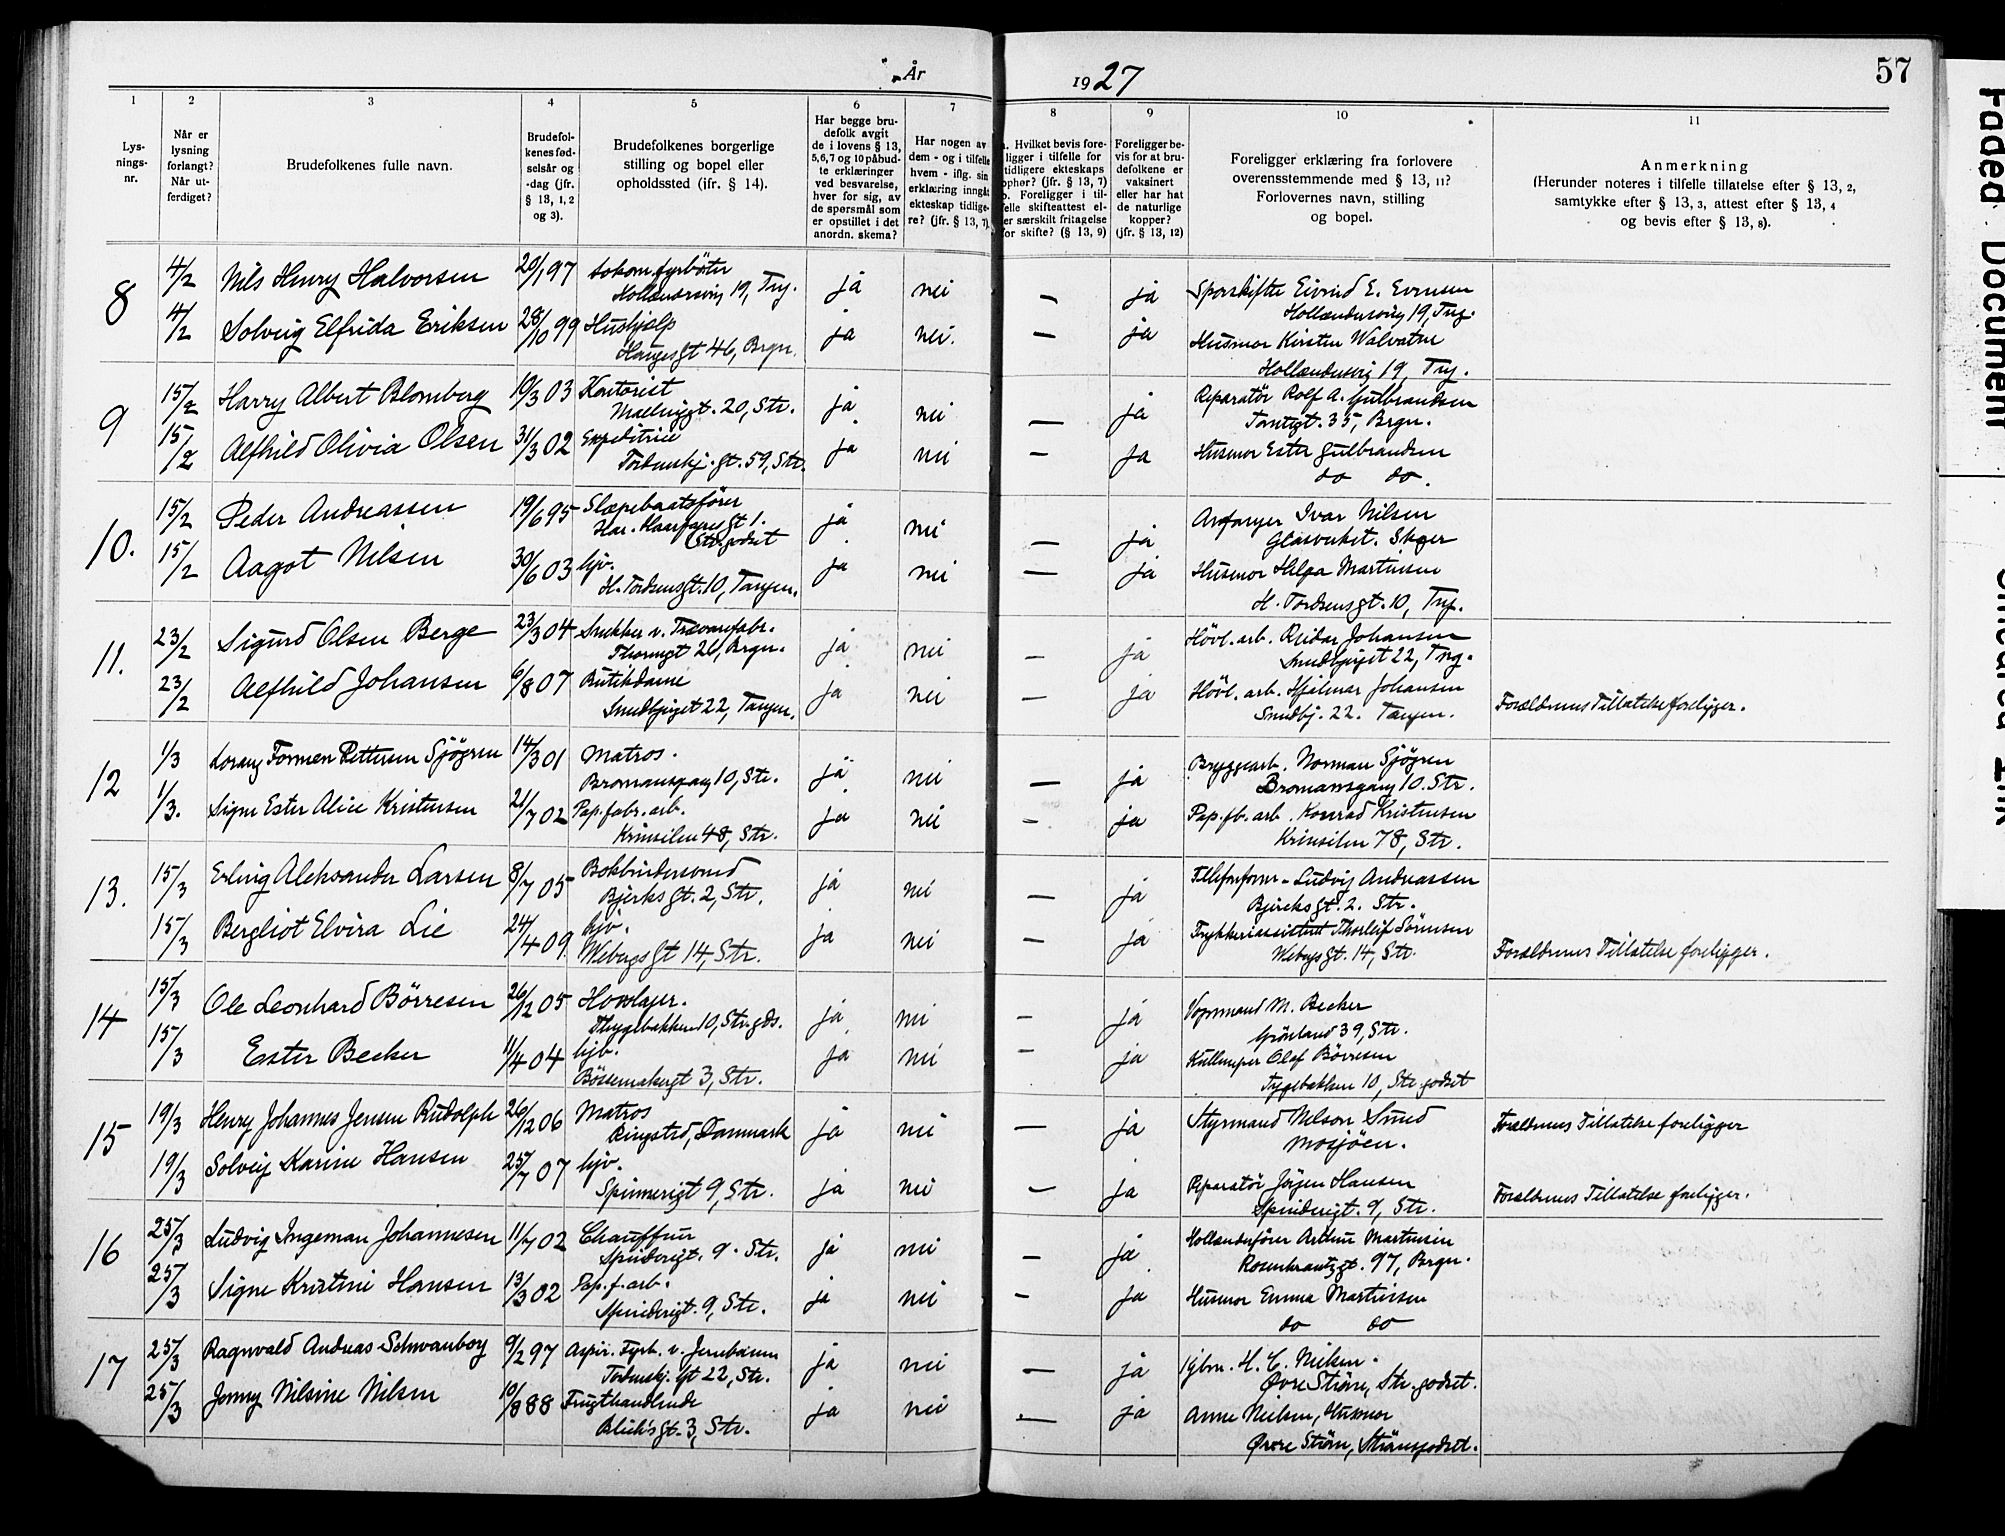 År 1927
57
1 2 3 4 5 6 7 8 9 10 11
Lys-
nings-
nr.
Når er
lysning
forlangt?
Når ut-
ferdiget?
Brudefolkenes fulle navn.
Brudefol-
kenes fød-
selsår og
-dag (jfr.
§ 13, 1, 2
og 3).
Brudefolkenes borgerlige
stilling og bopel eller
opholdssted (ifr. § 14).
Har begge bru-
defolk avgit
de i lovens § 13,
5,6,7 og 10 påbud-
te erklæringer
ved besvarelse,
hver for sig, av
de spørsmål som
er opstillet i det
anordn. skema?
Har nogen av
dem - og i tilfelle
hvem - iflg. sin
erklæring inngåt
ekteskap tidlige-
re? (jfr. § 13, 7)
a. Hvilket bevis fore-
ligger i tilfelle for
tidligere ekteskaps
ophør? (jfr. § 13, 7)
b. Foreligger i til-
felle skifteattest el-
ler særskilt fritagelse
for skifte? (§ 13, 9)
Foreligger be-
vis for at bru-
defolkene er
vaksinert
eller har hat
de naturlige
kopper?
(jfr. § 13, 12)
Foreligger erklæring fra forlovere
overensstemmende med § 13, 11?
Forlovernes navn, stilling
og bopel.
Anmerkning
(Herunder noteres i tilfelle tillatelse efter § 13, 2,
samtykke efter § 13, 3, attest efter § 13, 4
og bevis efter § 13, 8).
8 4/2 Nils Henry Halvorsen 20/1 97 Lokom.fyrböter ja nei — ja Sporskifter Eivind E. Evensen
Hollendersvig 19, Tng. Hollendersvig 19, Tng.
4/2 Solveig Elfrida Eriksen 28/10 99 Hushjelp ja nei. — ja Husmor Kirsten
Haugesgt 46, Brgn. Hollendersvig 19, Tng.
9 15/2 Harry Albert Blomberg 10/3 03 Kontorist ja nei — ja Reparatör Rolf A. Gulbrandsen
20, Str. Tomtegt. 35, Brgn.
15/2 Alfhild Olivia Olsen 31/3 02 Expeditrice ja nei — ja Husmor Ester Gulbrandsen
Tordenskj. gt. 59, Str. do do.
10. 15/2 Peder Andreassen 19/6 95 Slæpebaatsfører ja nei — ja Ivar Nilsen
Har. Haarfagresgt 1. Str.godset Glasverket. Skoger
15/2 Aagot Nilsen 30/6 03 hjv. ja nei — ja Husmor Helga Martinsen
H. Tordsensgt. 10, Tangen. H. Tordsensgt. 10, Tng.
11. 23/2 Sigurd Olsen Berge 23/3 04 Snekker v. Trevarefabr. ja nei — ja Hövl. arb. Reidar Johansen
Thornegt 26, Brgn. Smedbjerget 22, Tng.
23/2 Alfhild Johansen 6/8 07 Butikdame ja nei — ja Hövl. arb. Hjalmar Johansen
Smedbjerget 22, Tangen. Smedbj. 22. Tangen. Forældrenes Tillatelse foreligger.
12 1/3 Lorang Formen Pettersen Sjögren 14/3 01 Matros. ja nei — ja Bryggearb. Norman Sjögren
Bromansgang 10, Str. Bromansgang 10. Str.
1/3. Signe Ester Alice Kristensen 21/7 02 Pap.fabr. arb. ja nei — ja Pap.fb. arb. Konrad Kristensen
Krinsilen 48, Str. Krinsilen 78, Str.
13. 15/3 Erling Aleksander Larsen 8/7 05 Bokbindersvend ja nei — ja Telefonform. Ludvig Andreassen
Bjerksgt. 2, Str. Bjercksgt. 2. Str.
15/3 Bergliot Elvira Lie 24/4 09. hjv. ja nei — ja Trykkeriassistent Thorleif Sörensen
Webergsgt 14, Str. Webergsgt. 14, Str. Forældrenes Tillatelse foreligger.
14 15/3 Ole Leonhard Börresen 26/12 05 ja nei — ja Vognmand M. Becker
Thygebakken 10, Str.gds. Grönland 39, Str.
15/3 Ester Becker 11/4 04 hjv. ja nei — ja Olaf Börresen
Bössemakergt 3, Str. Tygebakken 10, Str. godset
15 19/3 Henry Johannes Jensen Rudolph 26/12 06 Matros ja nei — ja Styrmand Nelson Smed Forældrenes Tillatelse foreligger
Ringsted, Danmark Mosjöen.
19/3 Solveig Karine Hansen 25/7 07 hjv. ja nei — ja Reparatör Jörgen Hansen
Spinnerigt 9, Str. Spinderigt. 9, Str. Forældrenes Tillatelse foreligger.
16 25/3 Ludvig Ingeman Johannesen 11/7 02 Chauffeur ja nei — ja Hollænderfører Arthur Martinsen
Spinderigt. 9. Str. Rosenkrantzgt. 97, Brgn.
25/3 Signe Kristine Hansen 13/3 02 Pap. f. arb. ja nei — ja Husmor Emma Martinsen
Spinderigt. 9, Str. do do
17 25/3 Ragnvald Andreas Schwanborg 9/2 97 Aspir. Fyrb. v. Jernbanen ja nei — ja Gbr. H. C. Nielsen.
Tordenskj. gt 22, Str. Övre Ström, Str. godset.
25/3 Jenny Nilsine Nilsen 10/8 88 Frugthandlerinde ja nei — ja Anne Nielsen, Husmor
Blichsgt. 3, Str. Övre Ström, Strömsgodset.
Faded Document